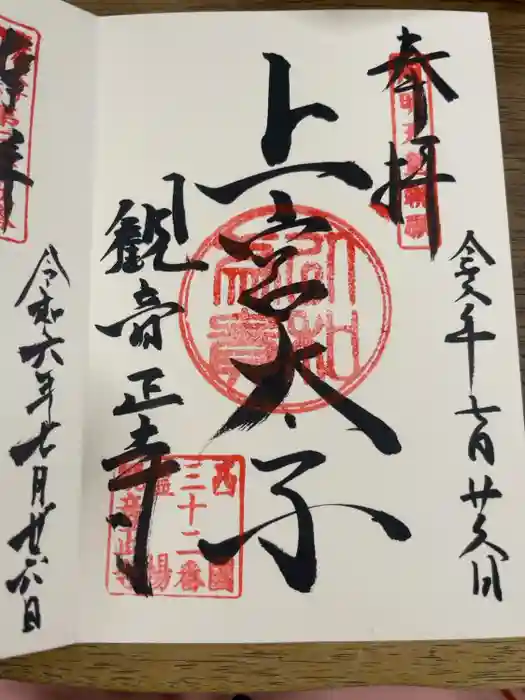 奉拝
令六年七月廿六日
上宮太子
観音正寺
西国
三十二番
霊場
観音正寺
令和六年七月廿六日